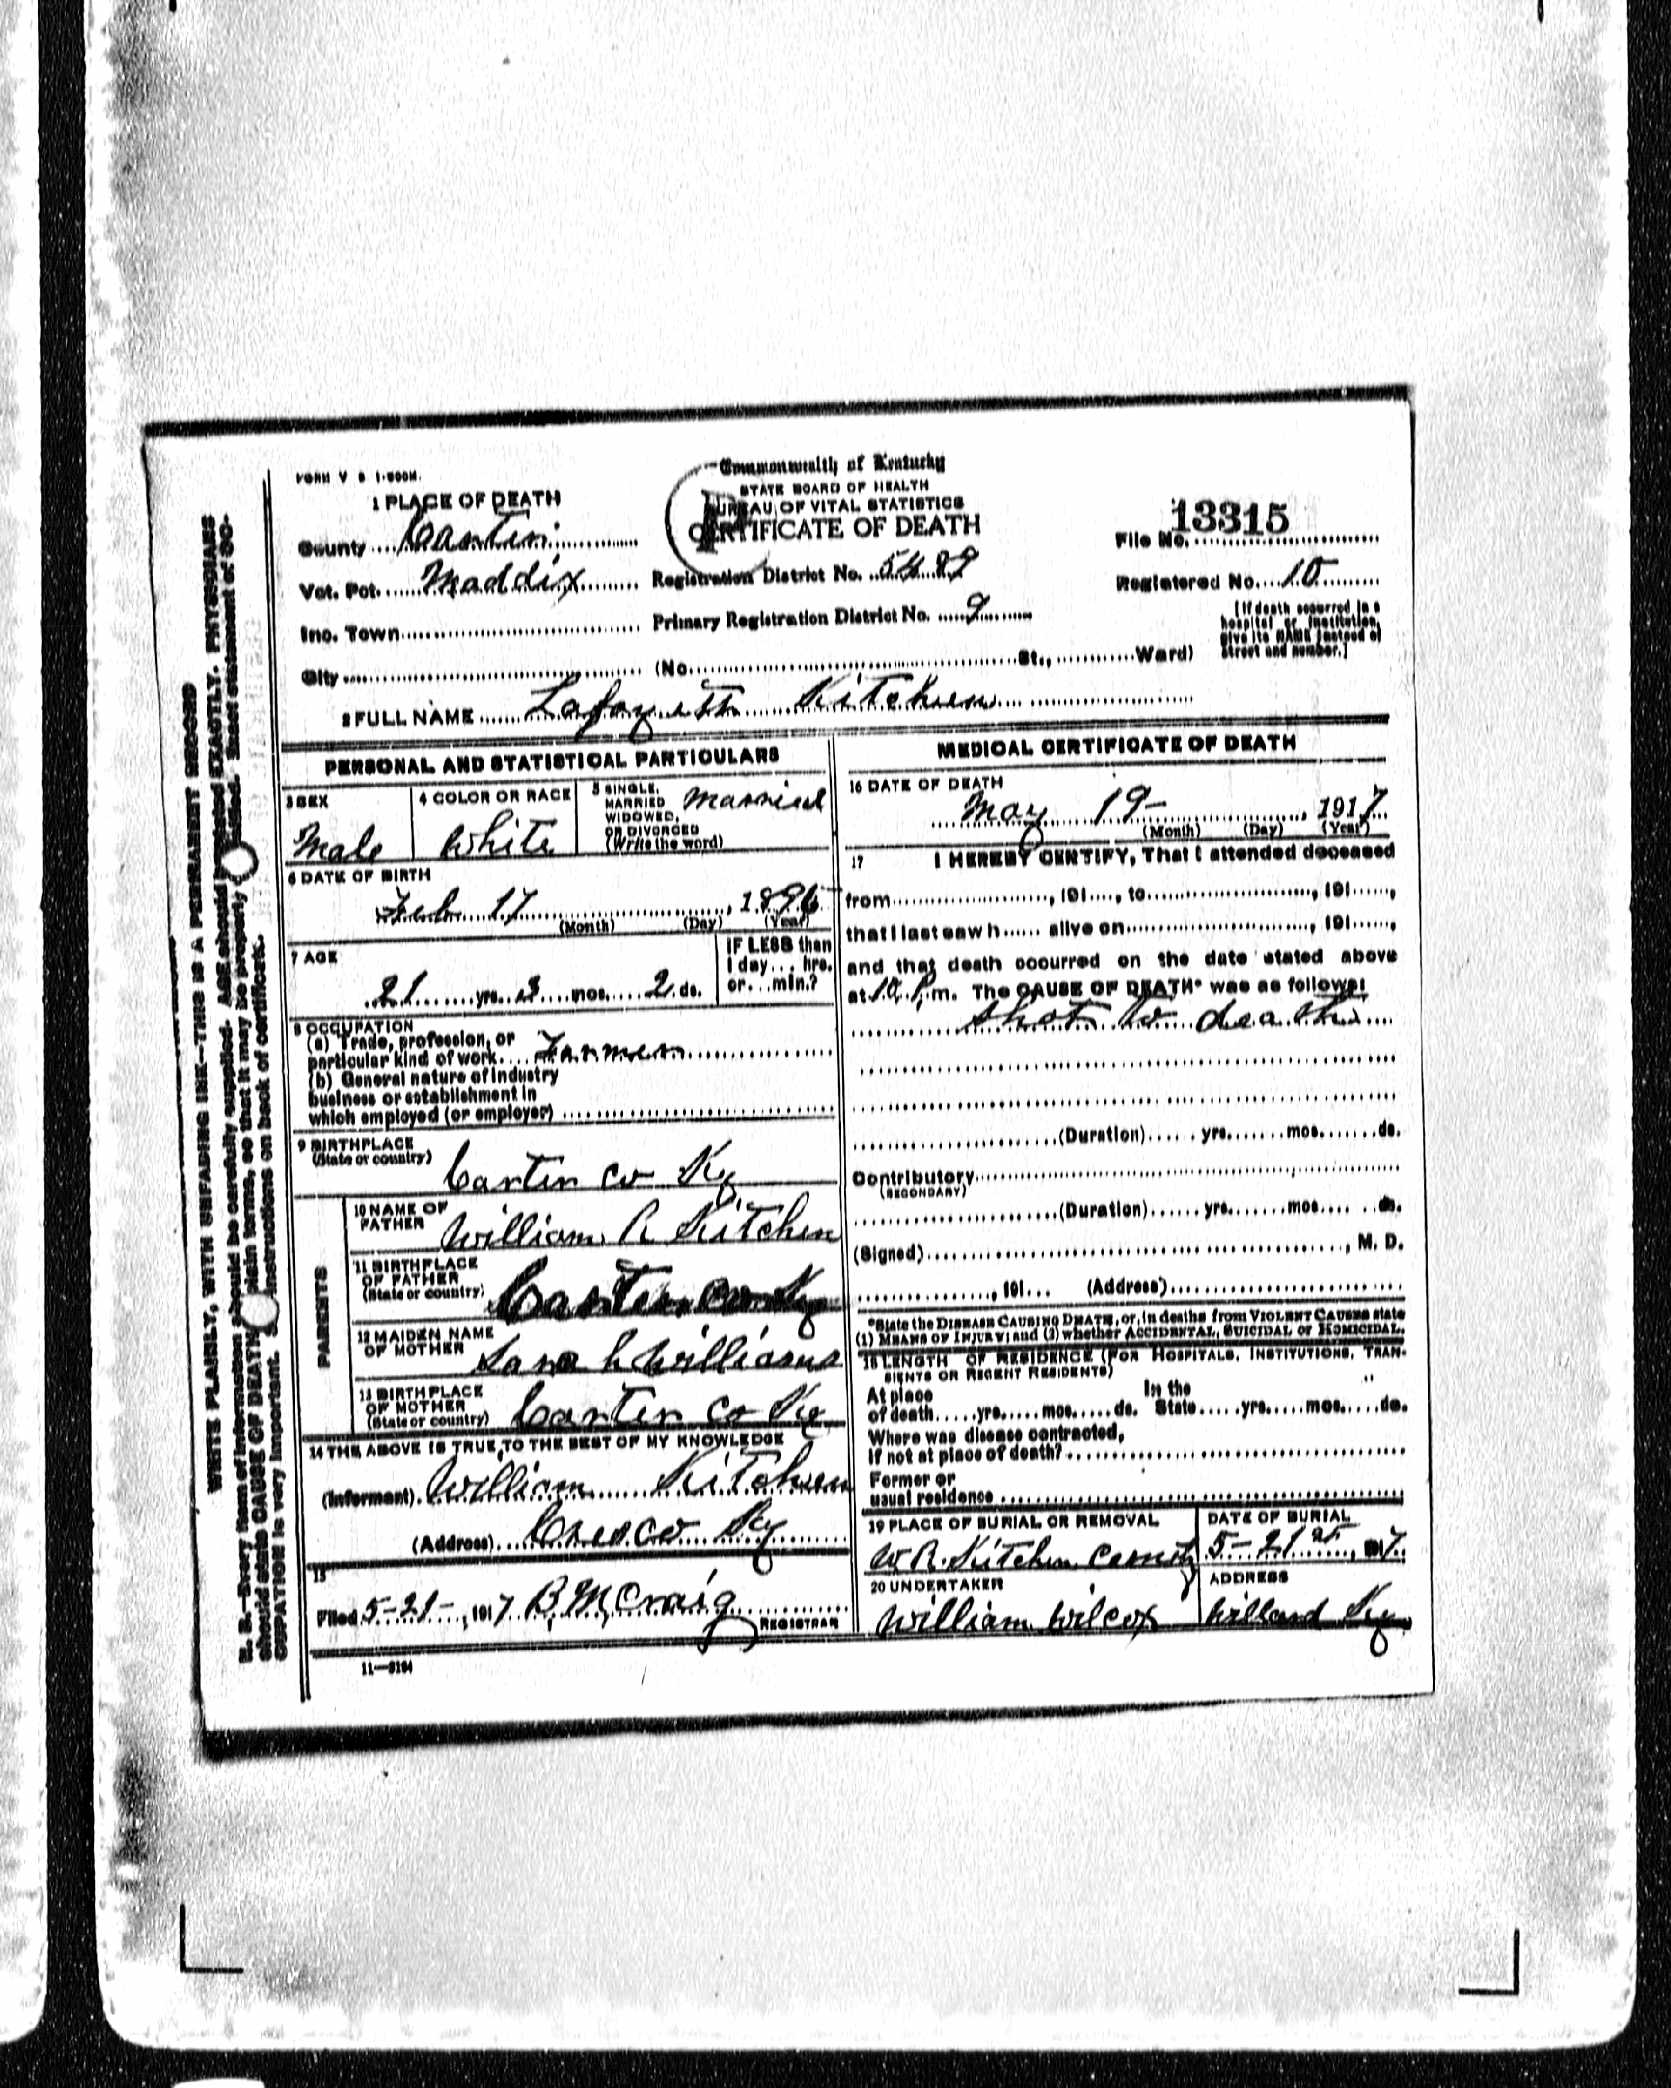 FORM V S 1-500M.
Commonwealth of Kentucky
STATE BOARD OF HEALTH
BUREAU OF VITAL STATISTICS
CERTIFICATE OF DEATH
1 PLACE OF DEATH
County Carter
Vot. Pct. Maddix
Inc. Town
City (No. St., Ward)
Registration District No. 5489
Primary Registration District No. 9
File No. 13315
Registered No. 10
[If death occurred in a
hospital or institution,
give its NAME instead of
street and number.]
2 FULL NAME Lafayett Kitchen
PERSONAL AND STATISTICAL PARTICULARS
3 SEX
Male
4 COLOR OR RACE
White
5 SINGLE,
MARRIED
WIDOWED,
OR DIVORCED
(Write the word)
Married
6 DATE OF BIRTH
Feb 17, 1896
(Month) (Day) (Year)
7 AGE
21 yrs. 3 mos. 2 ds.
IF LESS than
1 day... hrs.
or... min.?
8 OCCUPATION
(a) Trade, profession, or
particular kind of work Farmer
(b) General nature of industry
business or establishment in
which employed (or employer)
9 BIRTHPLACE
(State or country)
Carter Co Ky
PARENTS
10 NAME OF
FATHER
William R Kitchen
11 BIRTHPLACE
OF FATHER
(State or country)
Carter Co Ky
12 MAIDEN NAME
OF MOTHER
Williams
13 BIRTHPLACE
OF MOTHER
(State or country)
Carter Co Ky
14 THE ABOVE IS TRUE TO THE BEST OF MY KNOWLEDGE
(Informant) William Kitchen
(Address) Ky
15
Filed 5-21-, 1917 B M Craig
REGISTRAR
11-3184
MEDICAL CERTIFICATE OF DEATH
16 DATE OF DEATH
May 19-, 1917
(Month) (Day) (Year)
17 I HEREBY CERTIFY, That I attended deceased
from, 191, to, 191,
that I last saw h alive on, 191,
and that death occurred on the date stated above
at 10 P.m. The CAUSE OF DEATH* was as follows:
Shot to death
(Duration) yrs. mos. ds.
Contributory
(SECONDARY)
(Duration) yrs. mos. ds.
(Signed), M. D.
, 191 (Address)
*State the DISEASE CAUSING DEATH, or, in deaths from VIOLENT CAUSES state
(1) MEANS OF INJURY; and (2) whether ACCIDENTAL, SUICIDAL or HOMICIDAL.
18 LENGTH OF RESIDENCE (FOR HOSPITALS, INSTITUTIONS, TRAN-
SIENTS OR RECENT RESIDENTS)
At place
of death yrs. mos. ds.
In the
State yrs. mos. ds.
Where was disease contracted,
if not at place of death?
Former or
usual residence
19 PLACE OF BURIAL OR REMOVAL
W.R. Kitchen
DATE OF BURIAL
5-21st, 1917
20 UNDERTAKER
William Wilcox
ADDRESS
Willard Ky
WRITE PLAINLY, WITH UNFADING INK—THIS IS A PERMANENT RECORD
N. B.—Every item of information should be carefully supplied. AGE should be stated EXACTLY. PHYSICIANS
should state CAUSE OF DEATH in plain terms, so that it may be properly classified. Exact statement of OC-
CUPATION is very important. See instructions on back of certificate.